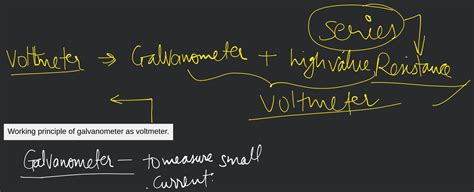 series
Voltmeter ⇒ Galvanometer + high value Resistance
Voltmeter
Working principle of galvanometer as voltmeter.
Galvanometer — to measure small
current.